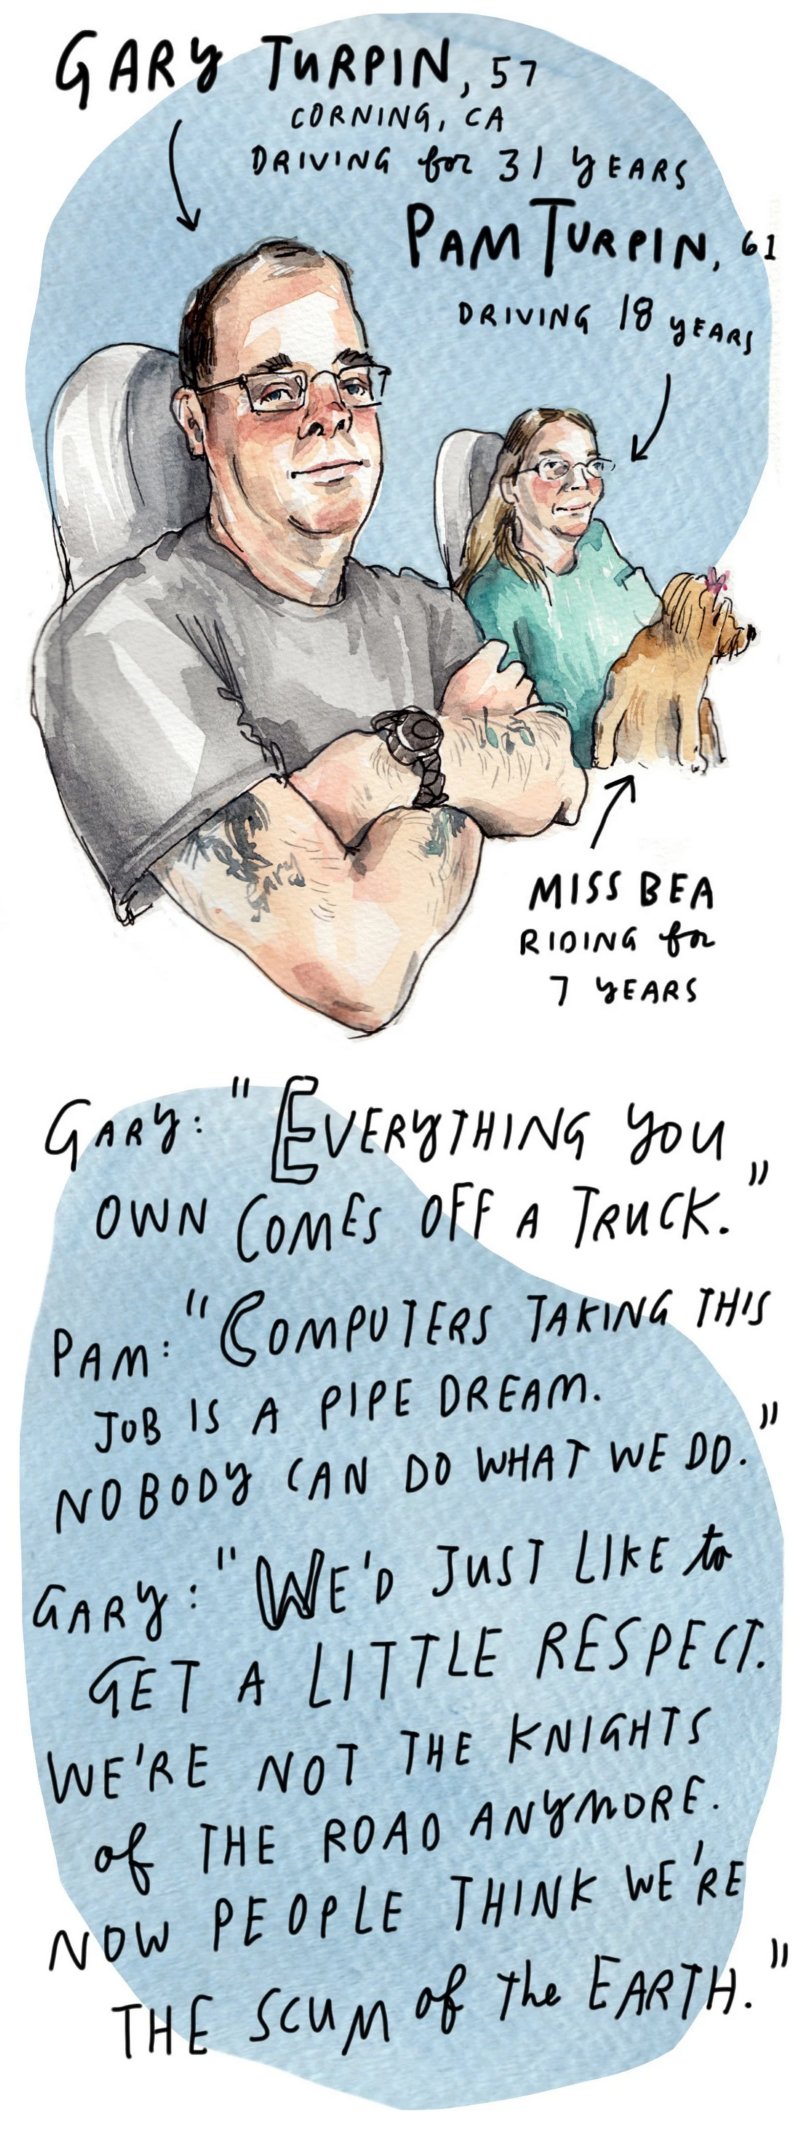 GARY TURPIN, 57
CORNING, CA
DRIVING for 31 YEARS
PAM TURPIN, 61
DRIVING 18 YEARS
Gary
MISS BEA
RIDING for
7 YEARS
GARY: "EVERYTHING YOU
OWN COMES OFF A TRUCK."
PAM: "COMPUTERS TAKING THIS
JOB IS A PIPE DREAM.
NOBODY CAN DO WHAT WE DO."
GARY: "WE'D JUST LIKE to
GET A LITTLE RESPECT.
WE'RE NOT THE KNIGHTS
of THE ROAD ANYMORE.
NOW PEOPLE THINK WE'RE
THE SCUM of the EARTH."